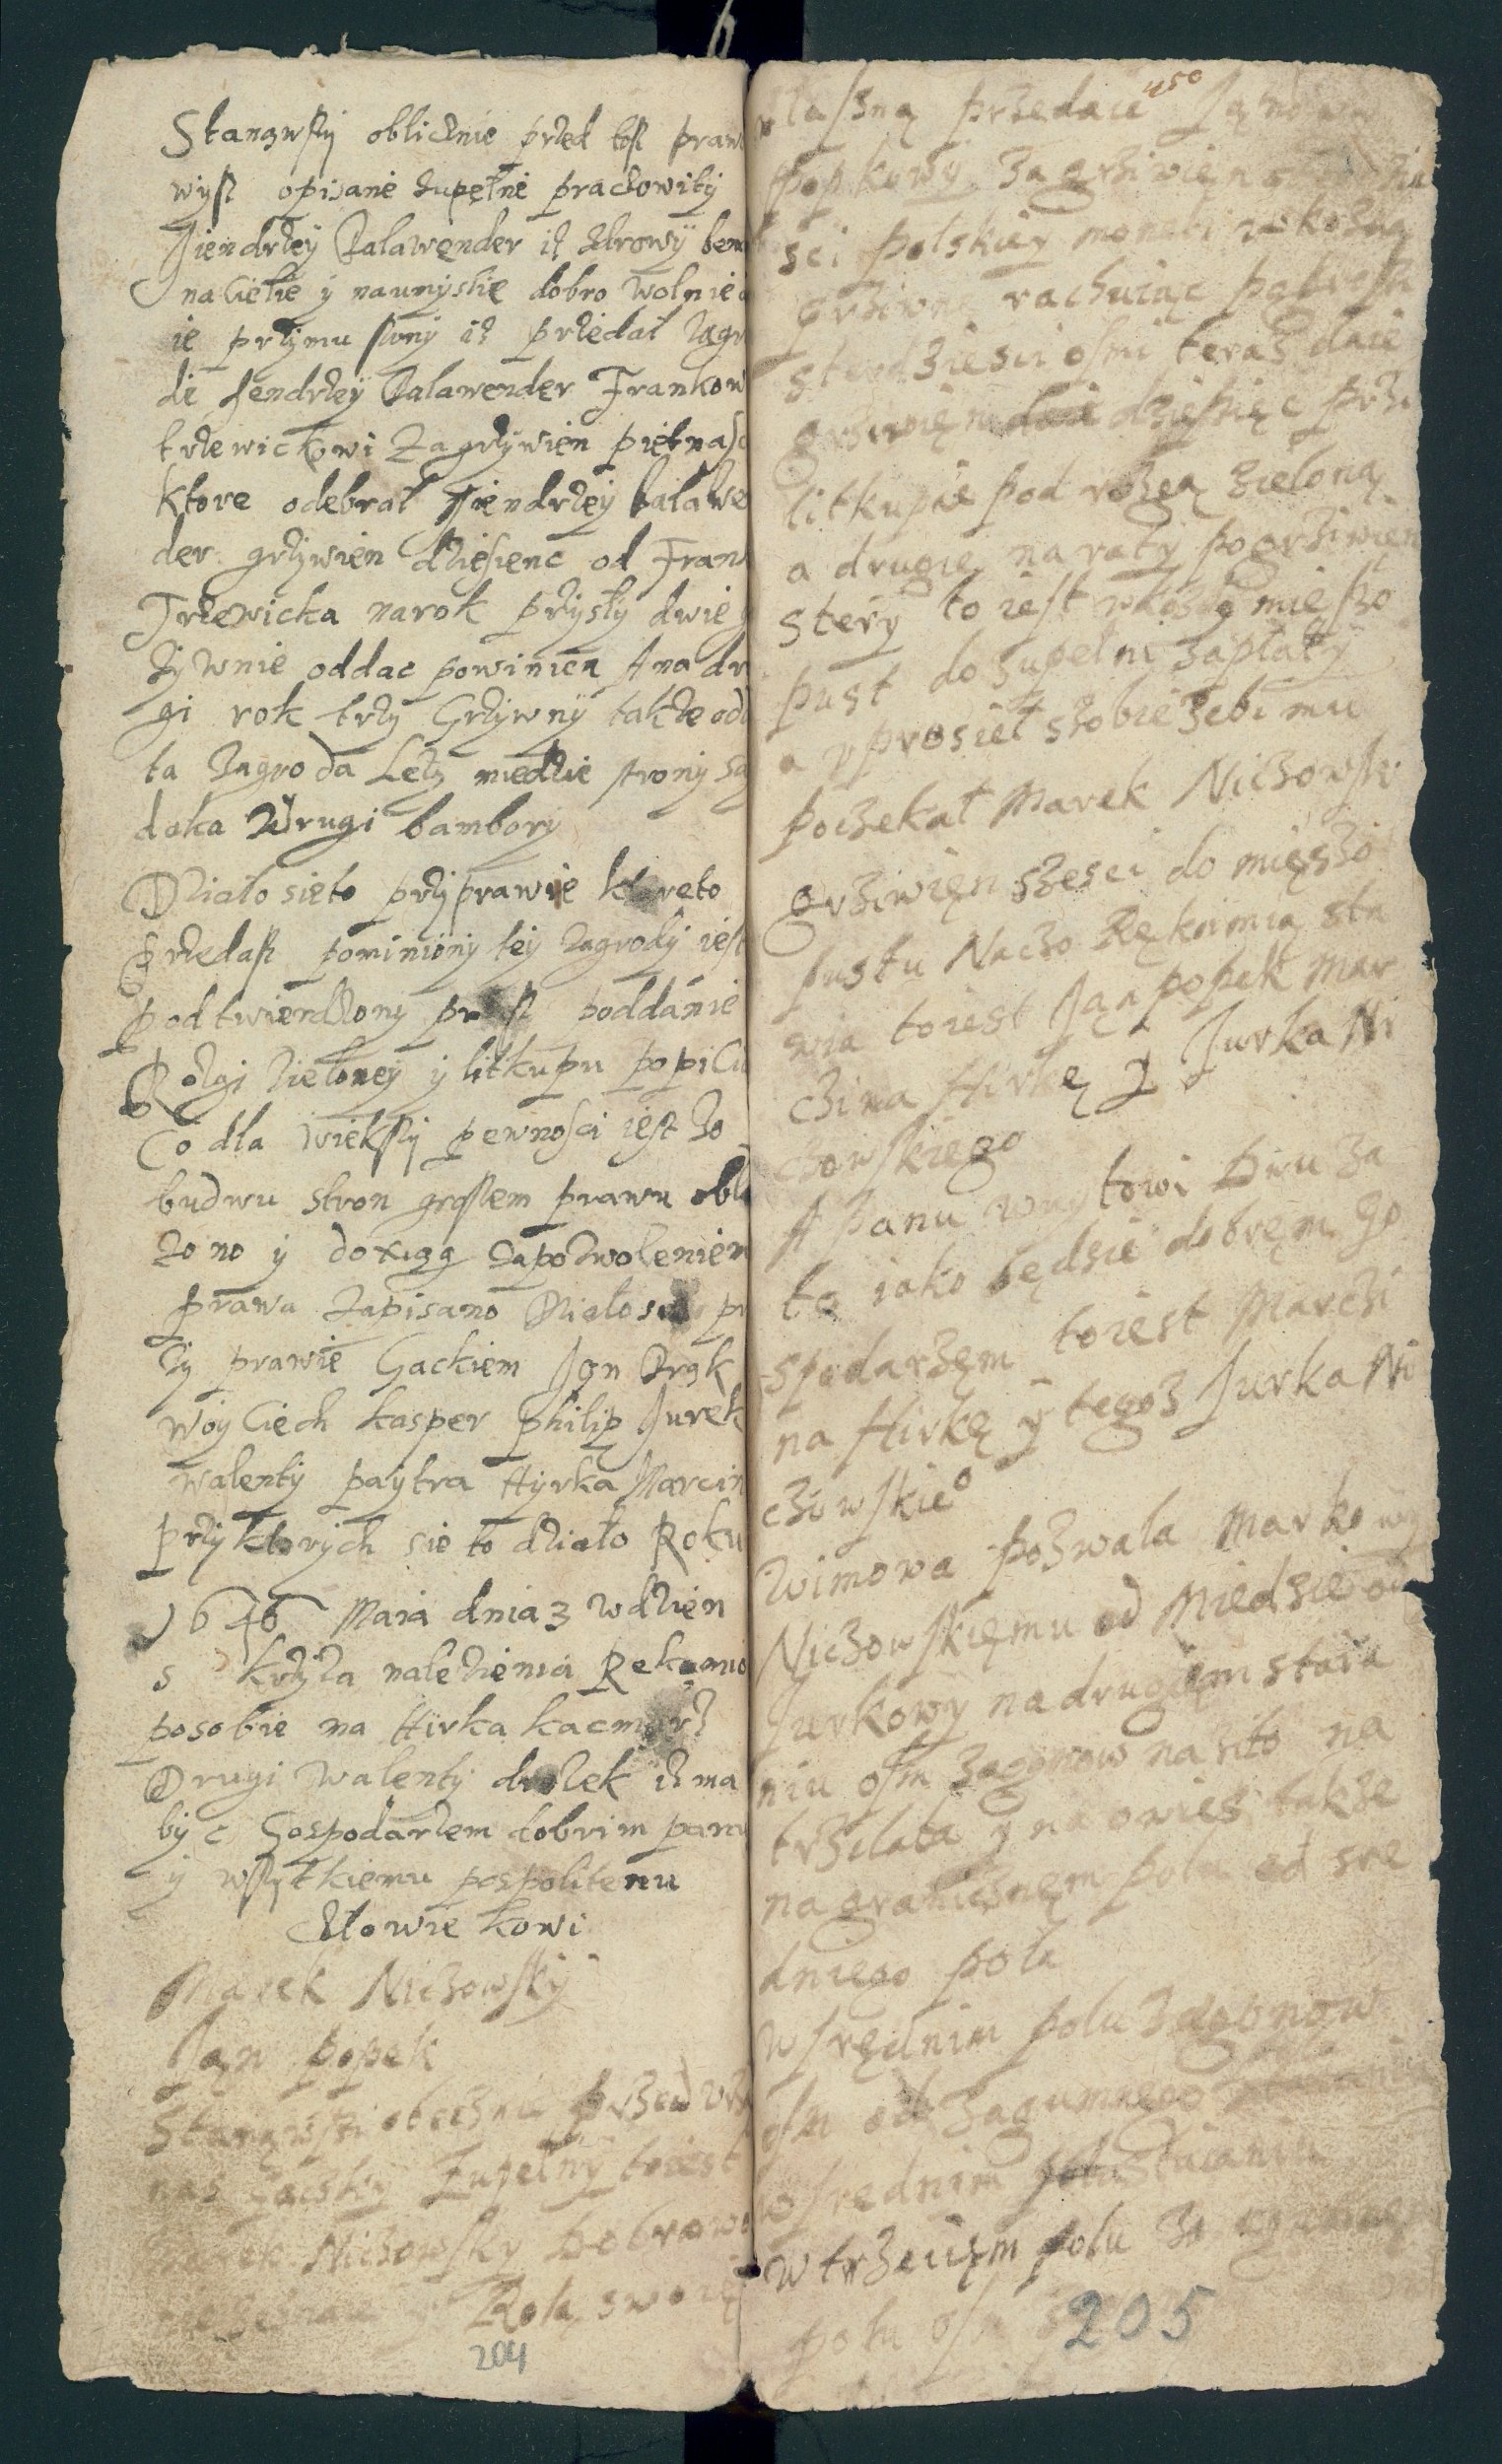 Stanąwszy oblicznie przed tosz praw
wysz opisane zupełne pracowity
Jiendrzey Balawender iż zdrowy bend
na ciele y na umyslie dobro wolnie
ie przymuszony iż przedał zagr
de Jendrzey Balawender Frankow
trzewickowi za grzywien pietnasc
ktore odebrał Jiendrzey baławe
der grzywien dziesienc od Fran
Trzewicka na rok przyszły dwie g
rzywnie oddac powinien A na dr
gi rok trzy Grzywny takze od
ta zagroda Lezy miedzie strony są
doka Drugi bambory
Działo sie to przy prawie ktore to
Przedasz pominiony tey zagrody iest
podtwierdzony poddanie
Rozgi zieloney y litkupu popiciu
Co dla wiekszy pewnosci iest zo
budwu stron groszem prawu obło
zono y do xiąg za pozwoleniem
prawa zapisano Działo sie pr
zy prawie Gackiem Jan Brąk
woyciech kasper philip Jurek
walenty paytra Hyrka Marcin
przy ktorych sie to działo Roku
1646 Maia dnia 3 w dzien
s krzyza nalezienia Rekomio
po sobie ma Hirka kacmarz
Drugi walenty drozek iz ma
byc Gospodarzem dobrim panu
y wszytkiemu pospolitemu
człowiekowi
Marek Niczowsky
Jan popek
Stanąwszi obecznie przed urz
nas gaczsky zupełny to iest
Marek Niczowsky dobrowo
Rolą swoię
204
450
własną przedaie Janowi
popkowy za grziwien
sci polskiey moneti w kozdą
grziwną rachuiąc po groszi
sterdziesci osmi teraz daie
grziwien dziesięc przi
litkupie pod rozgą zieloną
a drugie na raty po grziwien
stery to iest w kozdy mięszo
pust do zupełni zapłaty
a uprosieł szobie zebi mu
poczekał Marek Niczowski
grziwien szesci do mięszo
pustu Naczo Rękoimią sta
wia to iest Jan popek Mar
czina Hirkę y Jurka Ni
czowskiego
A panu woytowi dwu za
to iako będzie dobrem go
spodarzem to iest Marczi
na Hirkę y tegoz Jurka Ni
czowskieo
Wimowa pozwala Markowy
Niczowskięmu od Miedzie od
Jurkowy na drugiem staia
niu osm zagonow na zito na
trzi lata y na owies takze
na granicznęm polu od sre
dniego pola
w srędnim polu zagonow
osm od zagumnego
w srednim staianiu
w trzecięm polu
polu osm
205